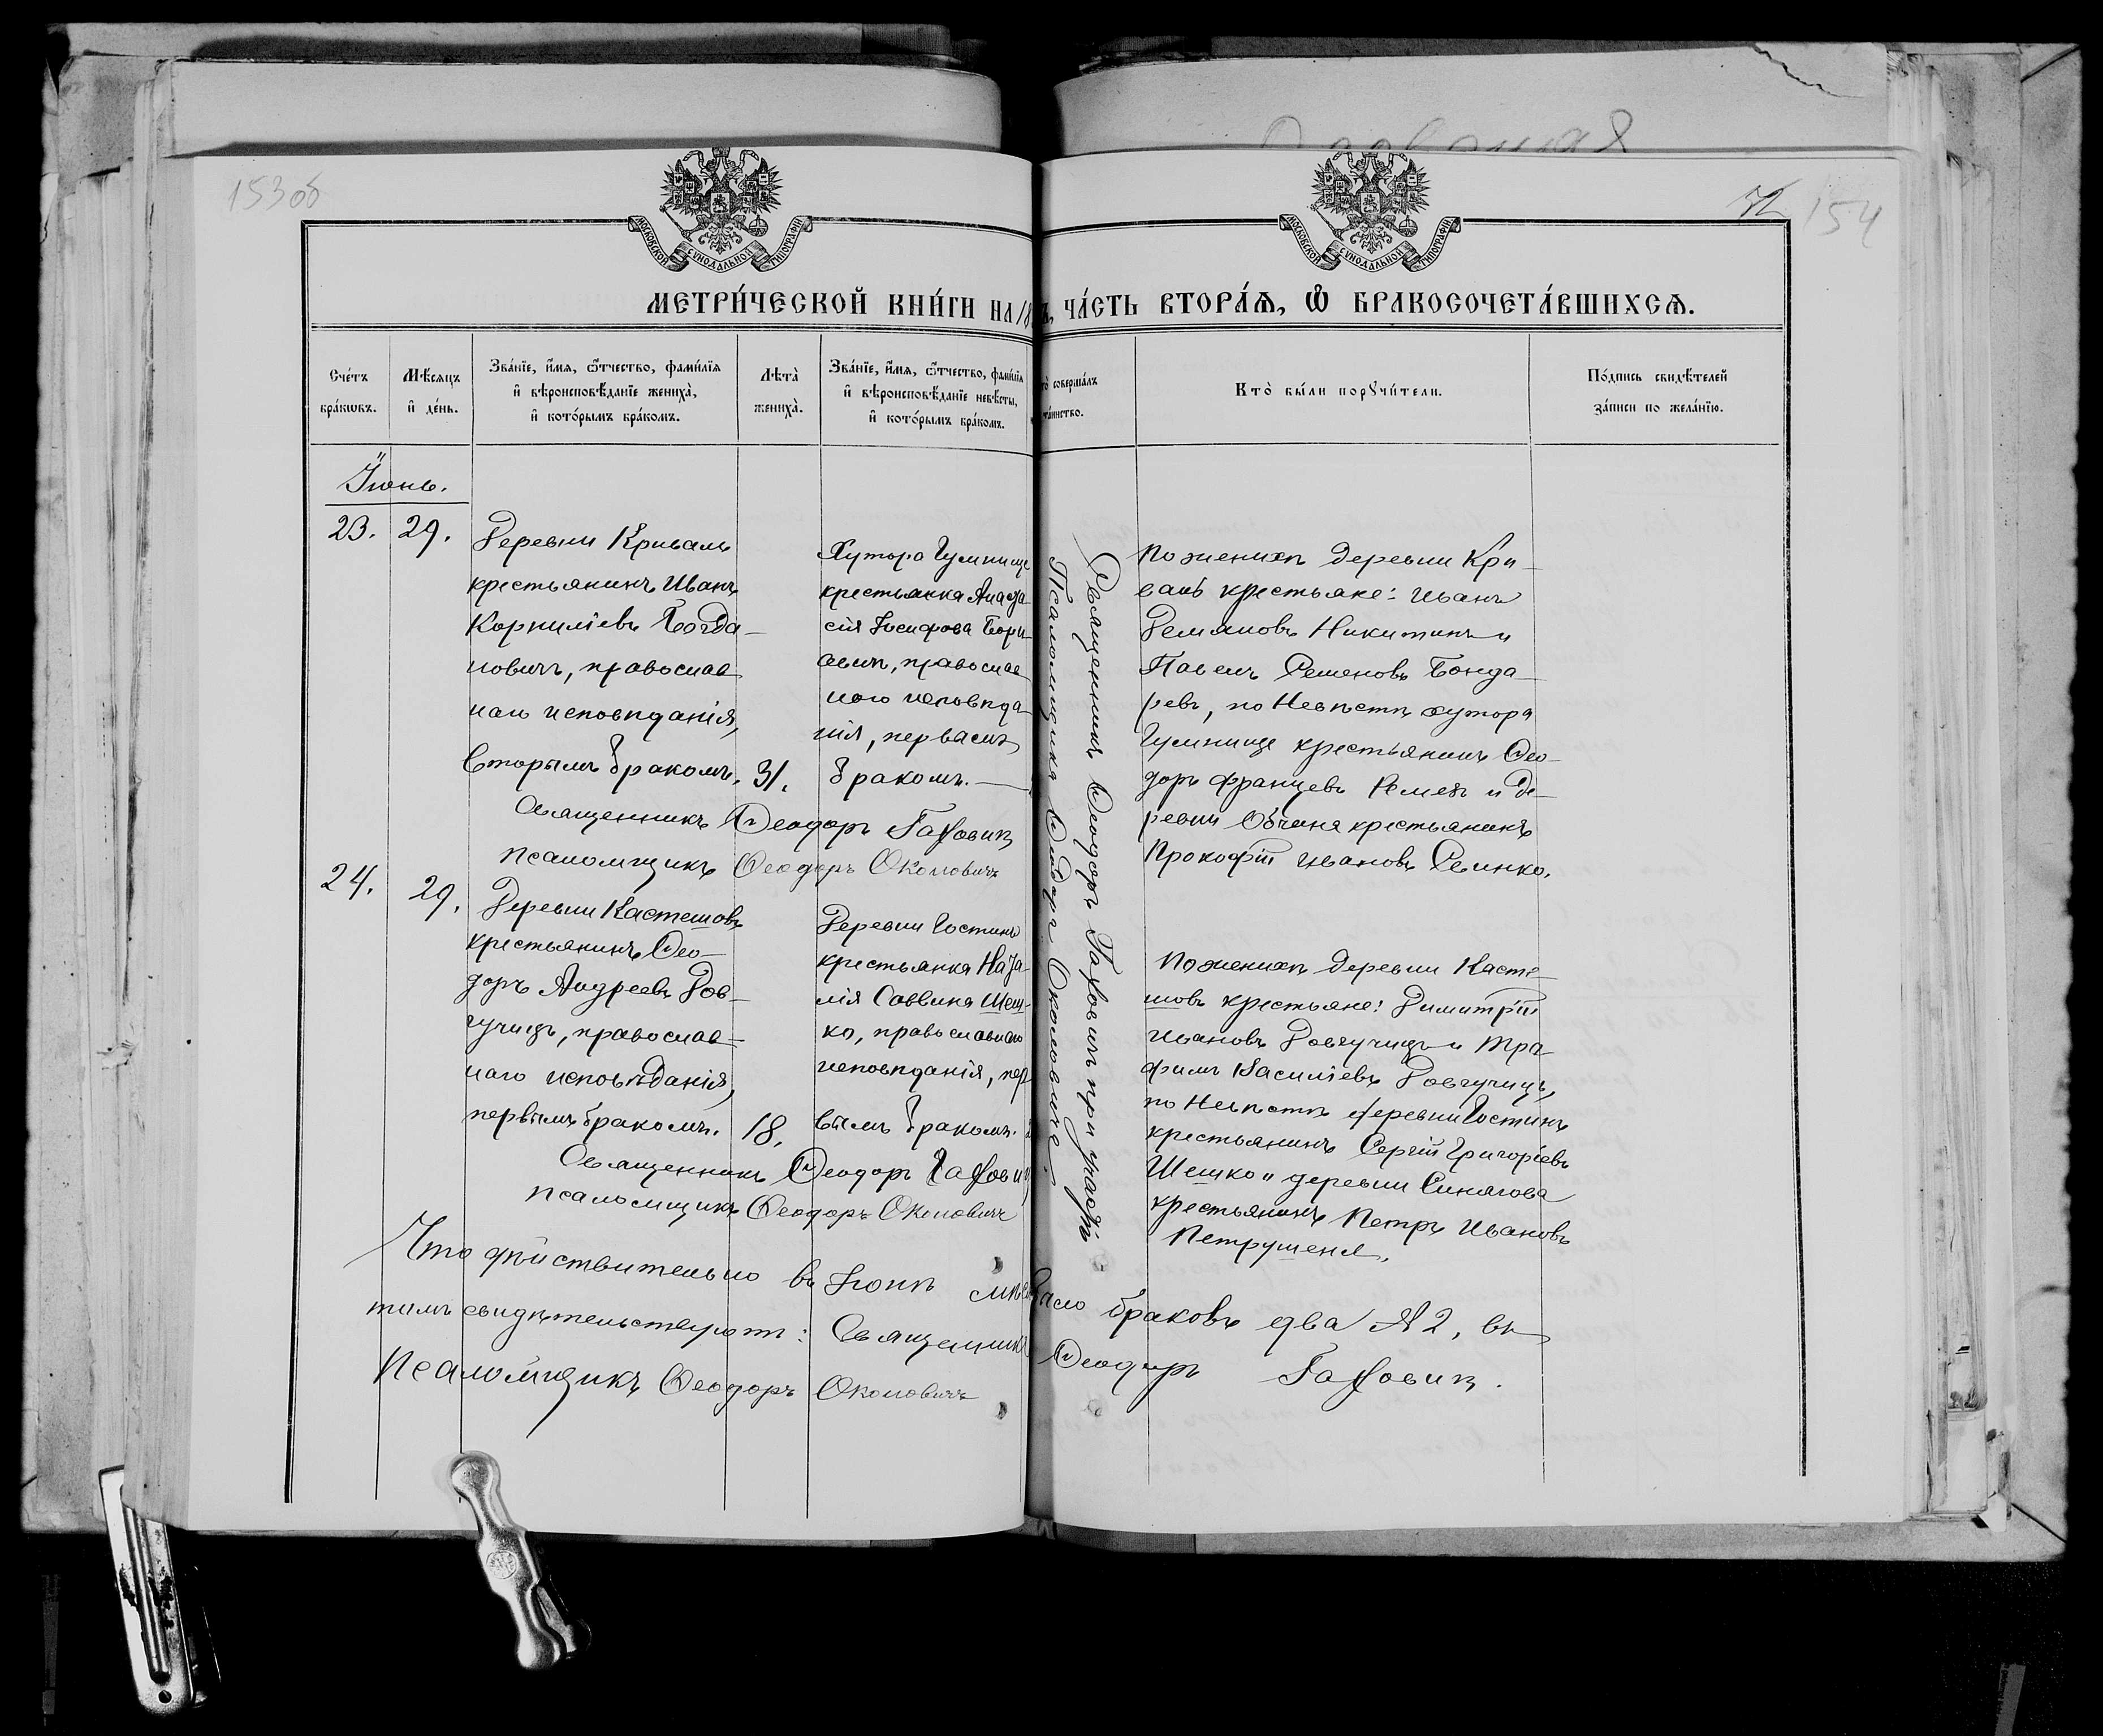 153об
154
МОСКОВСКОЙ СѴНОДАЛЬНОЙ ТИПОГРАФІИ
МОСКОВСКОЙ СѴНОДАЛЬНОЙ ТИПОГРАФІИ
МЕТРИ́ЧЕСКОЙ КНИ́ГИ НА 18 ЧА́СТЬ ВТОРА́Ѧ, Ѽ БРАКОСОЧЕТА́ВШИХСѦ.
Сче́тъ бра́кѡвъ.
Мѣ́сяцъ и҆ де́нь.
Зва́нїе, и҆́мѧ, ѻ҆́тчество, фами́лїѧ
и҆ вѣроисповѣ́данїе жениха̀,
и҆ кото́рымъ бра́комъ.
Лѣ́та̀ жениха̀.
Зва́нїе, и҆́мѧ, ѻ҆́тчество, фами́лїѧ
и҆ вѣроисповѣ́данїе невѣ́сты,
и҆ кото́рымъ бра́комъ.
то̀ соверша́лъ
та́инство.
Кто̀ бы́ли порꙋчи́тели.
По́дпись свидѣ́телей
за́писи по жела́нїю.
Іюнь.
23.
29.
Деревни Криваль
крестьянинъ Иванъ
Корниліевъ Богда-
новичъ, православ
наго исповѣданія,
вторымъ бракомъ.
31.
Хутора Гумнище
крестьянка Анаста-
сія Іосифова
православ
наго исповѣда-
нія, первымъ
бракомъ.
Священникъ Ѳеодоръ
Псаломщикъ Ѳеодоръ Околовичъ
Священникъ Ѳеодоръ при участіи
Псаломщика Ѳеодора Околовича.
По женихѣ деревни Кри-
валь крестьяне: Иванъ
Демьяновъ Никитинъ и
Павелъ Семеновъ Бонда-
ревъ, по невѣстѣ хутора
Гумнище крестьянинъ Ѳео-
доръ Францевъ и де-
ревни Обчина крестьянинъ
Прокофій Ивановъ Свинко.
24.
29.
Деревни Кастешовъ
крестьянинъ Ѳео-
доръ Андреевъ Дов-
гучицъ, православ-
наго исповѣданія,
первымъ бракомъ.
18.
Деревни Гостинъ
крестьянка Ната-
лія Саввина Шеш-
ко, православнаго
исповѣданія, пер
вымъ бракомъ.
Священникъ Ѳеодоръ
Псаломщикъ Ѳеодоръ Околовичъ
По женихѣ деревни Касте-
шовъ крестьяне: Димитрій
Ивановъ Довгучицъ и Тро-
фимъ Василіевъ Довгучицъ,
по невѣстѣ деревни Гостинъ
крестьянинъ Сергій Григоріевъ
Шешко и деревни Синягова
крестьянинъ Петръ Ивановъ
Петрушеня.
Что дѣйствительно въ Іюнѣ было браковъ два № 2, въ
томъ свидѣтельствуютъ: Священникъ Ѳеодоръ
Псаломщикъ Ѳеодоръ Околовичъ